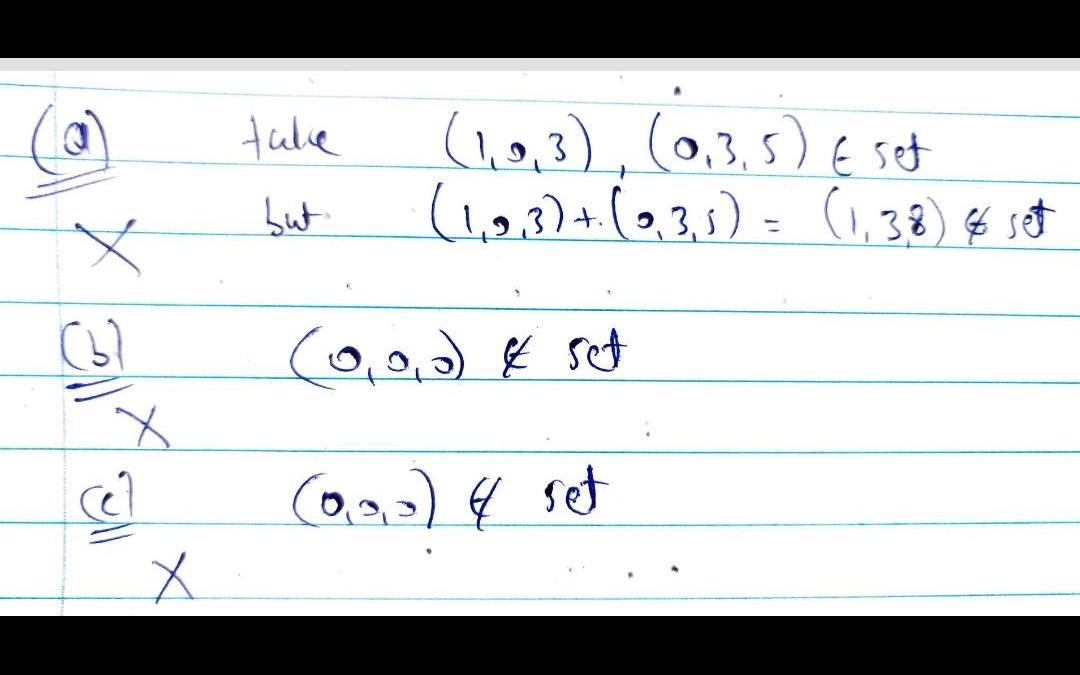 (a) take (1,0,3), (0,3,5) ∈ set
X but (1,0,3)+(0,3,5) = (1,3,8) ∉ set
(b) (0,0,0) ∉ set
X
(c) (0,0,0) ∉ set
X